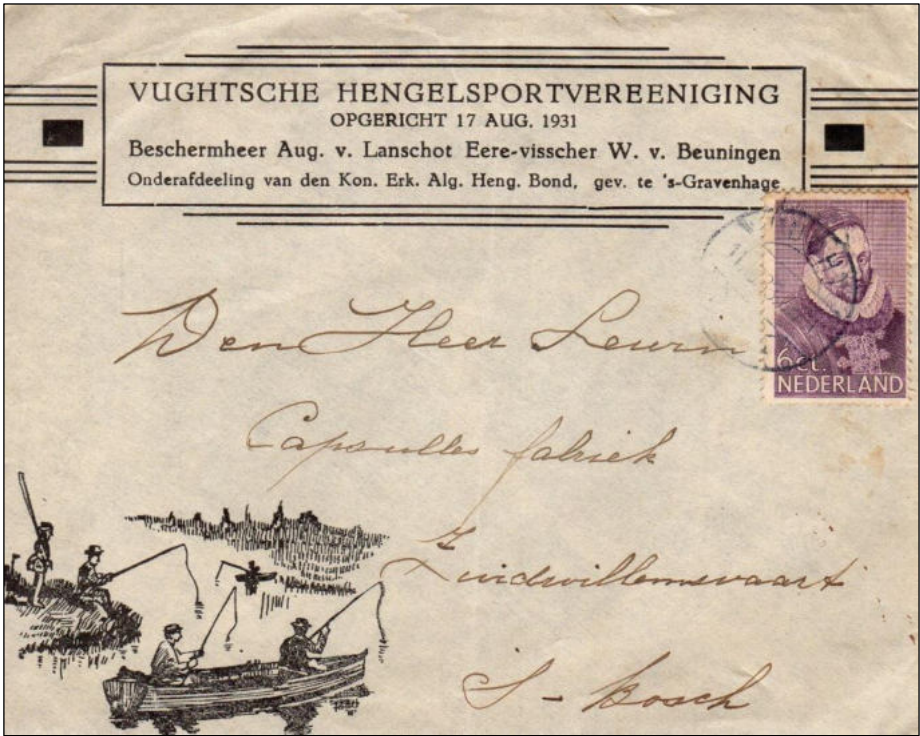 VUGHTSCHE HENGELSPORTVEREENIGING
OPGERICHT 17 AUG. 1931
Beschermheer Aug. v. Lanschot Eere-visscher W. v. Beuningen
Onderafdeeling van den Kon. Erk. Alg. Heng. Bond, gev. te 's-Gravenhage
6ct.
NEDERLAND
Den Heer Lewin
Capsulles fabriek
Zuidwillemsvaart
S - Bosch